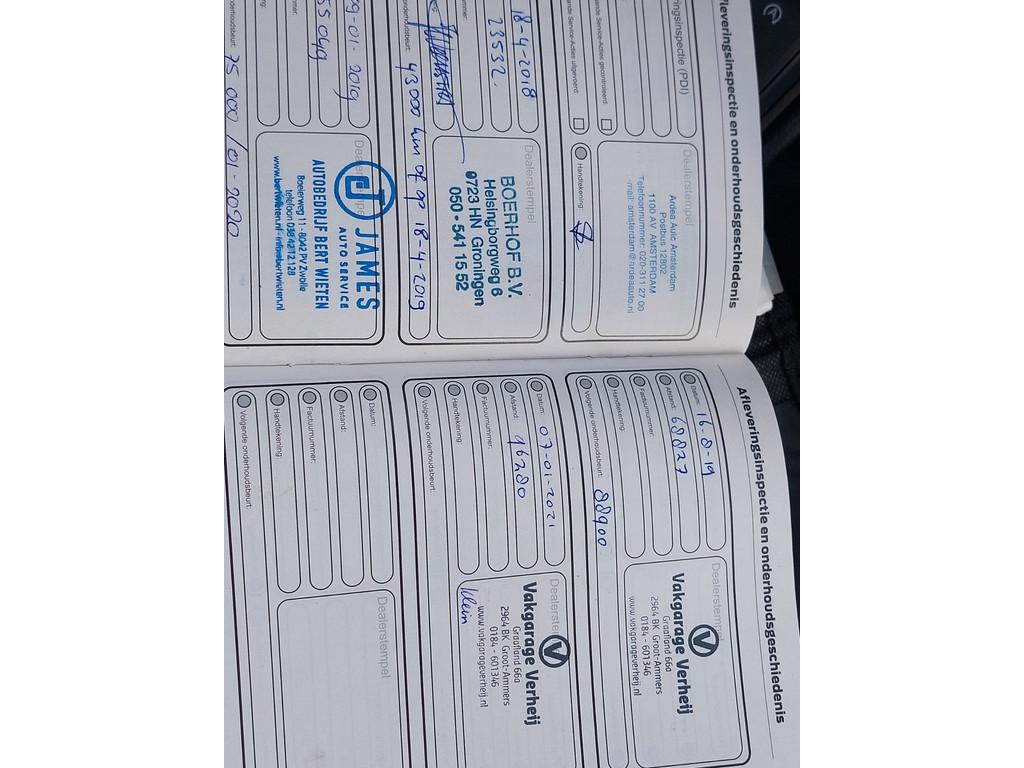 fleveringsinspectie en onderhoudsgeschiedenis
ringsinspectie (PDI)
ande Service-Acties gecontroleerd:
ande Service-Acties uitgevoerd:
Dealerstempel
Ardea Auto Amsterdam
Postbus 12802
1100 AV AMSTERDAM
Telefoonnummer: 020-311 27 00
-mail: amsterdam@ardeaauto.nl
Handtekening:
18-4-2018
23532.
mmer:
onderhoudsbeurt: 43000 km of op 18-4-2019
Dealerstempel
BOERHOF B.V.
Helsingborgweg 6
9723 HN Groningen
050 - 541 15 52
09-01-2019
55049
derhoudsbeurt: 75 000 / 01-2020
Dealerstempel
JAMES
AUTO SERVICE
AUTOBEDRIJF BERT WIETEN
Boeierweg 11 - 8042 PV Zwolle
telefoon 038 42 12 128
www.bertwieten.nl - info@bertwieten.nl
Afleveringsinspectie en onderhoudsgeschiedenis
Datum: 16-8-19
Afstand: 68827
Factuurnummer:
Handtekening:
Volgende onderhoudsbeurt: 88900
Dealerstempel
V
Vakgarage Verheij
Graafland 66a
2964 BK Groot-Ammers
0184 - 601346
www.vakgarageverheij.nl
Datum: 07-01-2021
Afstand: 96280
Factuurnummer:
Handtekening:
Volgende onderhoudsbeurt:
Dealerstempel
V
Vakgarage Verheij
Graafland 66a
2964 BK Groot-Ammers
0184 - 601346
www.vakgarageverheij.nl
klein
Datum:
Afstand:
Factuurnummer:
Handtekening:
Volgende onderhoudsbeurt:
Dealerstempel